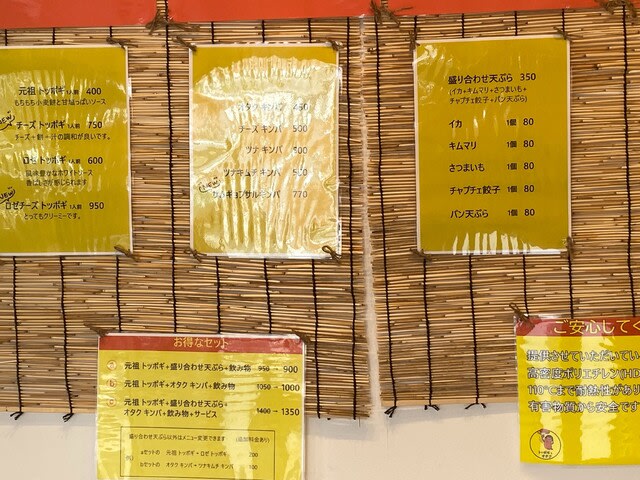 元祖 トッポギ 1人前 400
もちもち小麦餅と甘塩っぱいソース
NEW
チーズ トッポギ 1人前 750
チーズ+餅一汁の調和が良いです。
ロゼ トッポギ 1人前 600
風味豊かなホワイトソース
NEW
ロゼチーズ トッポギ 1人前 950
とってもクリーミーです。
オタク キンパ 450
チーズ キンパ 500
ツナ キンパ 500
ツナキムチ キンパ
NEW
サムギョプサルキンパ 770
盛り合わせ天ぷら 350
(イカ+キムマリ+さつまいも+
チャプチェ餃子+パン天ぷら)
イカ 1個 80
キムマリ 1個 80
さつまいも 1個 80
チャプチェ餃子 1個 80
パン天ぷら 1個 80
お得なセット
元祖 トッポギ+盛り合わせ天ぷら+飲み物 950 → 900
元祖 トッポギ+オタク キンパ+飲み物 1050 → 1000
元祖 トッポギ+盛り合わせ天ぷら+
オタク キンパ+飲み物+サービス 1400 → 1350
盛り合わせ天ぷら以外はメニュー変更できます (追加料金あり)
例)
aセットの 元祖 トッポギ→ロゼ トッポギ 200
bセットの オタク キンパ→ツナキムチ キンパ
ご安心してく
提供させていただいてい
高密度ポリエチレン(HD
110℃まで耐熱性があり
有害物質から安全です